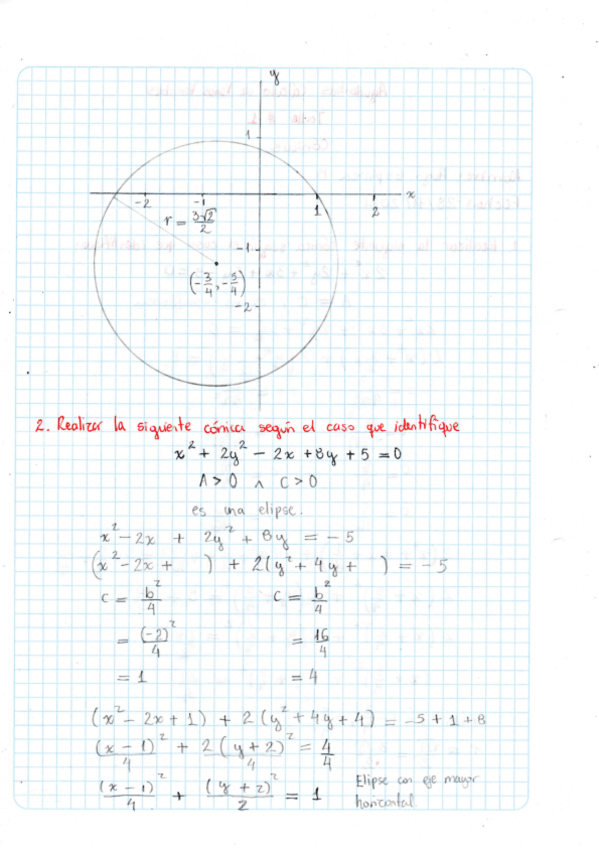 y
1
-2 -1 1 2 x
r = 3√2/2
-1
(-3/4, -5/4)
-2
2. Realizar la siguiente cónica según el caso que identifique
x² + 2y² - 2x + 8y + 5 = 0
A > 0 ∧ C > 0
es una elipse.
x² - 2x + 2y² + 8y = -5
(x² - 2x + ) + 2(y² + 4y + ) = -5
C = b²/4 C = b²/4
= (-2)²/4 = 16/4
= 1 = 4
(x² - 2x + 1) + 2(y² + 4y + 4) = -5 + 1 + 8
(x - 1)²/4 + 2(y + 2)²/4 = 4/4
(x - 1)²/4 + (y + 2)²/2 = 1 Elipse con eje mayor
horizontal.